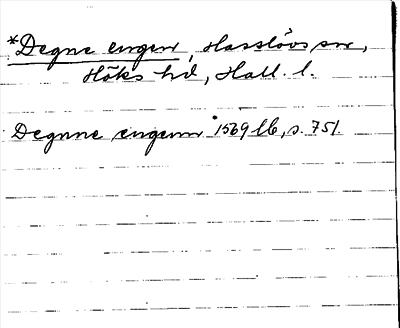 *Degne engen, Hasslövs sn,
Höks hd, Hall. l.
Degnne engenn 1569 lb, s. 751.